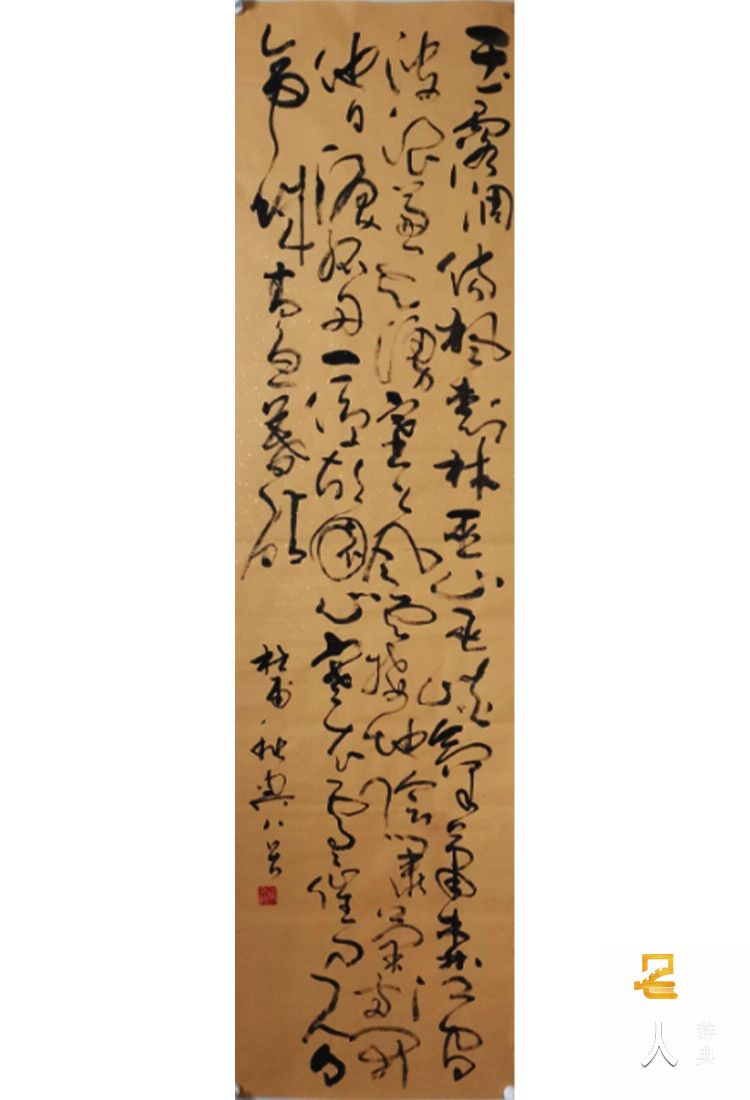 玉露凋傷楓樹林巫山巫峽氣蕭森江間
波浪兼天湧塞上風雲接地陰叢菊兩開
他日淚孤舟一係故園心寒衣處處催刀尺白
帝城高急暮砧
杜甫秋興八首
名人
辞典